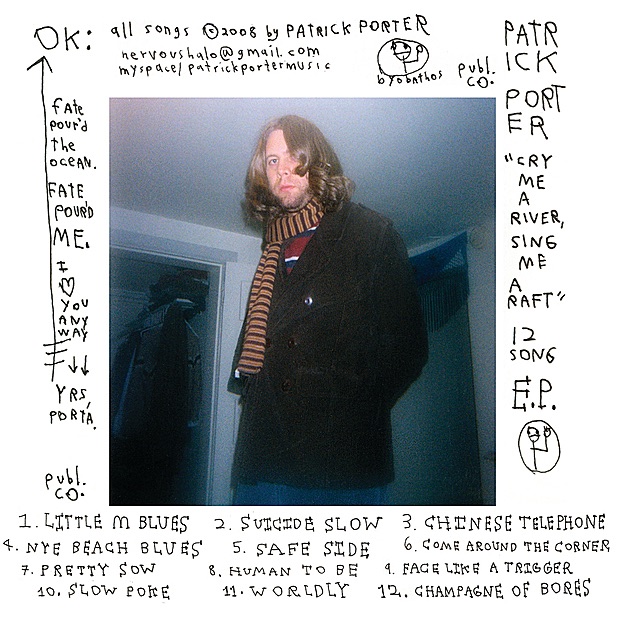 OK:
all songs ©2008 by PATRICK PORTER
nervoushalo@gmail.com
myspace/patrickportermusic
byobathos
publ.
co.
PATR
ICK
PORT
ER
"CRY
ME
A
RIVER,
SING
ME
A
RAFT"
12
SONG
E.P.
Fate
pour'd
The
ocean.
FATE
POUR'D
ME.
I
♡
YOU
ANY
WAY
YRS,
PORTA.
publ.
co.
1. LITTLE M BLUES 2. SUICIDE SLOW 3. CHINESE TELEPHONE
4. NYE BEACH BLUES 5. SAFE SIDE 6. COME AROUND THE CORNER
7. PRETTY SOW 8. HUMAN TO BE 9. FACE LIKE A TRIGGER
10. SLOW POKE 11. WORLDLY 12. CHAMPAGNE OF BORES